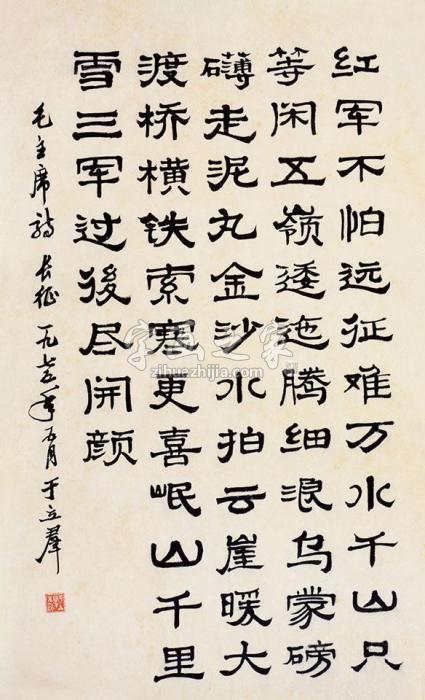 红军不怕远征难万水千山只
等闲五嶺逶迤腾细浪乌蒙磅
礴走泥丸金沙水拍云崖暖大
渡桥横铁索寒更喜岷山千里
雪三军过後尽开颜
毛主席诗长征一九七年月于立羣
字画之家
zihuezhijia.com